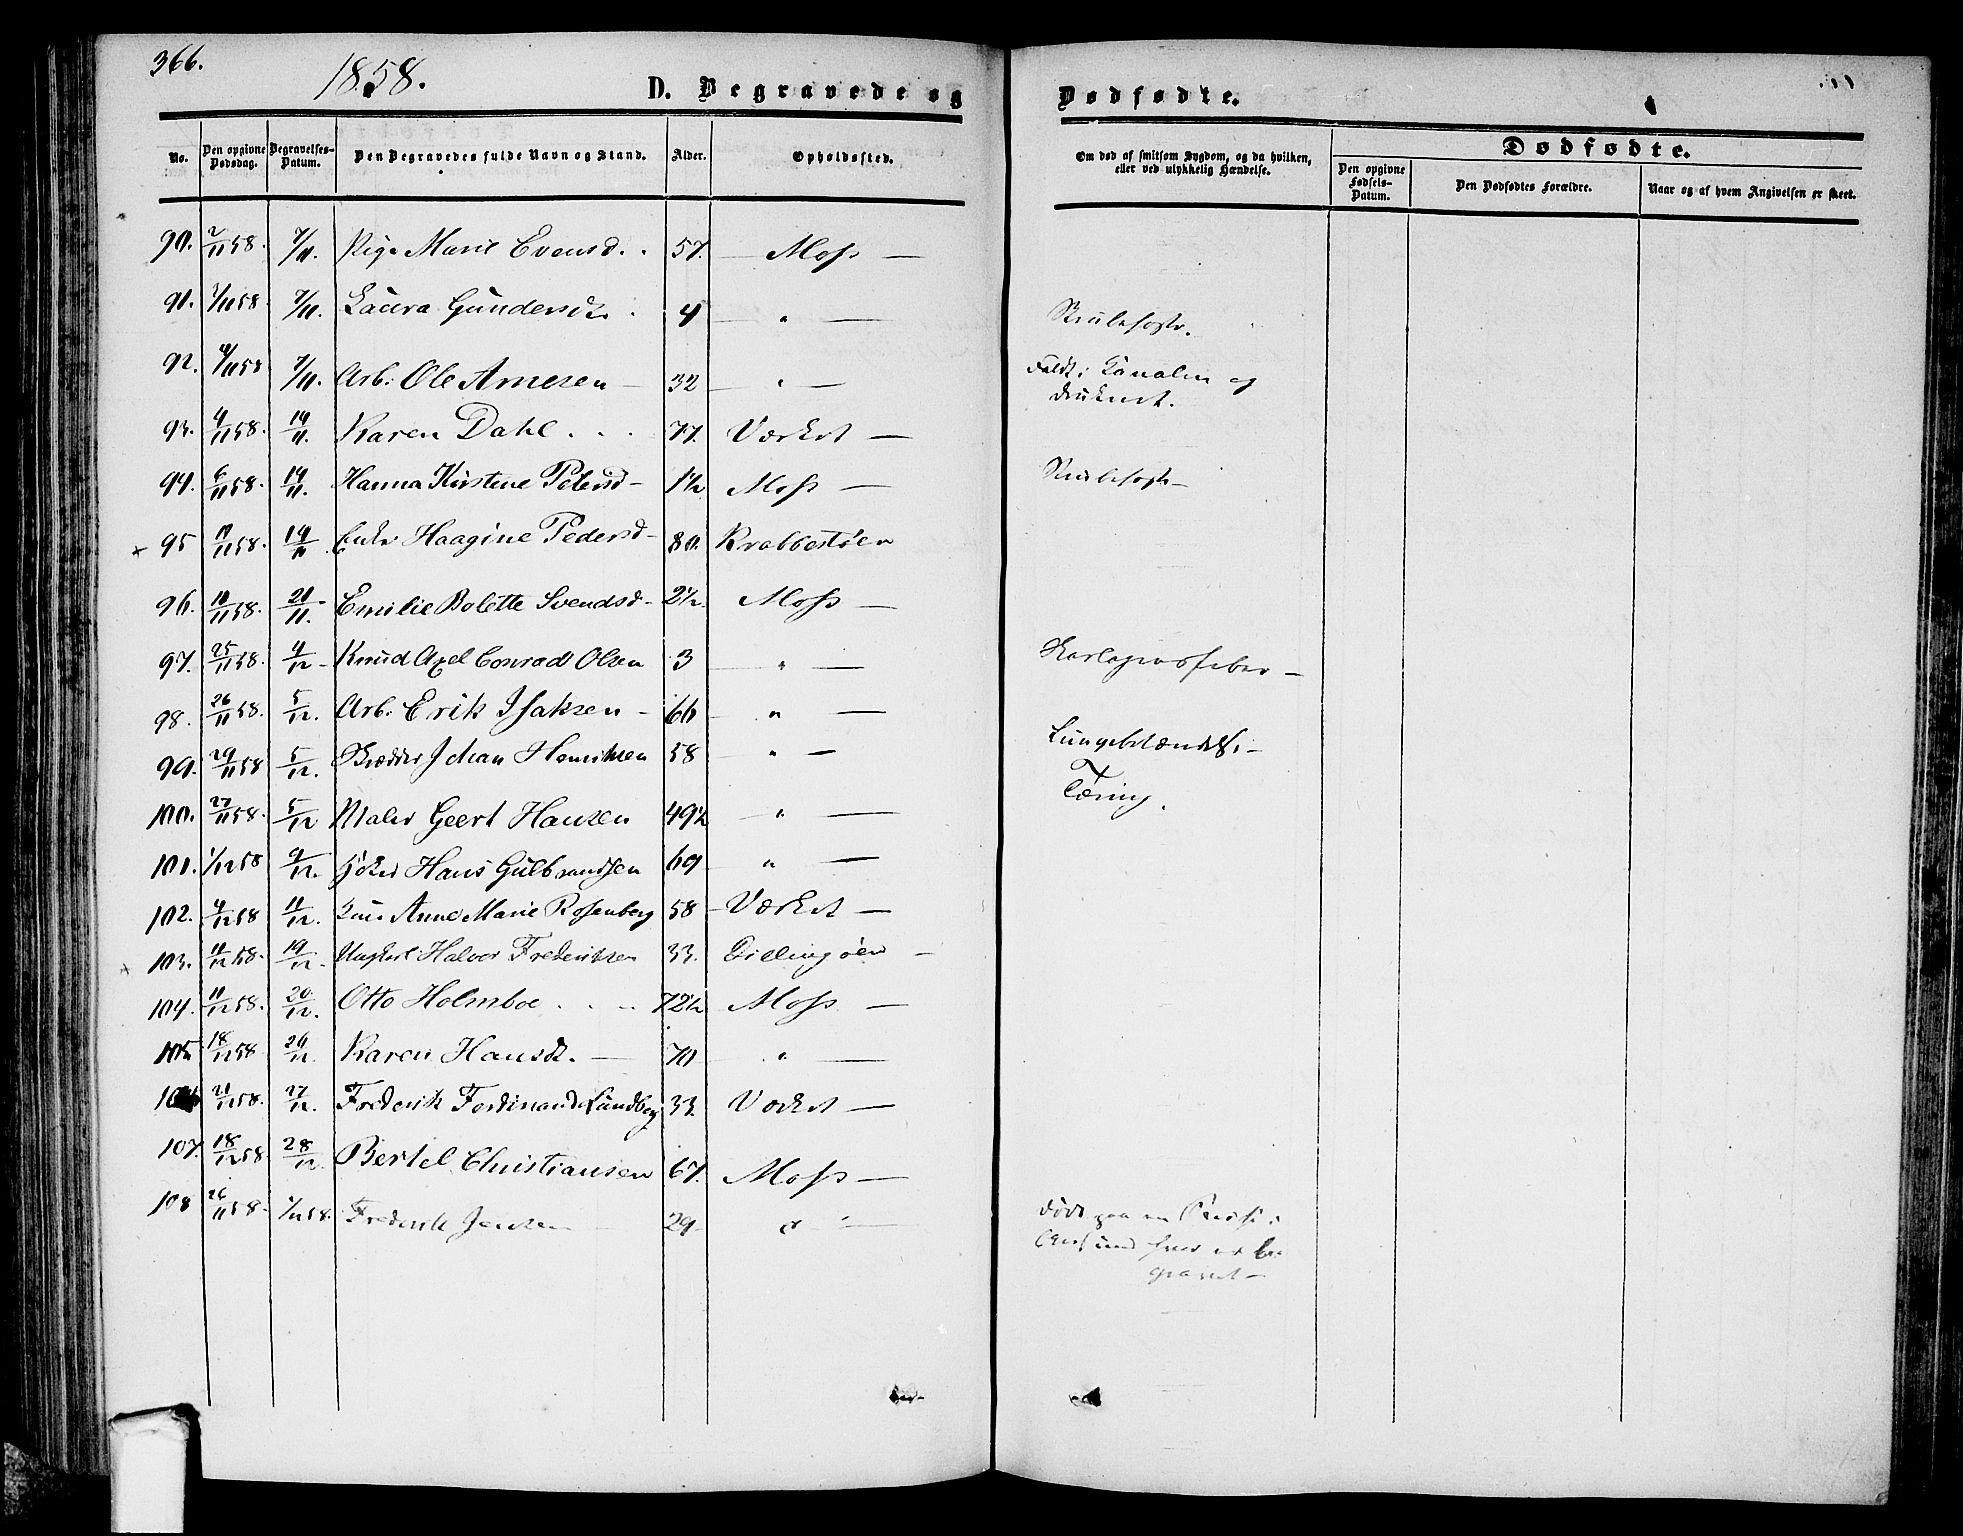 366.
1858.
D. Begravede og Dødfødte.
No. Den opgivne Dødsdag. Begravelses-Datum. Den Begravedes fulde Navn og Stand. Alder. Opholdssted. Om død af smitsom Sygdom, og da hvilken, eller ved ulykkelig Hændelse. Dødfødte. Den opgivne Fødsels-Datum. Den Dødfødtes Forældre. Naar og af hvem Angivelsen er skeet.
90. 2/11 58. 7/11. Pige Marie Evensd. 57. — Moss —
91. 2/11 58. 7/11. Laura Gundersdt. 4 — " —
92. 4/11 58 7/11. Arb: Ole Arnesen — 32 — " — Faldt i Canalen og druknet.
93. 4/11 58. 14/11. Karen Dahl . . . 77. Værket —
94. 6/11 58. 14/11. Hanna Kirstine Petersd — 1½ Moss —
95 11/11 58. 14/11 Enke Haagine Pedersd — 80. Krabbestøen
96. 10/11 58. 21/11. Emilie Bolette Svendsd — 2½. Moss —
97. 25/11 58. 4/12 — Knud Axel Conrad Olsen 3 — " —
98. 26/11 58. 5/12. Arb. Erik Isaksen — 66 — " —
99. 29/11 58 5/12. Johan Henriksen 58 " — Lungebetændelse —
100. 27/11 58. 5/12 Maler Geert Hansen 49½ — " — Tæring.
101. 1/12 58 9/12. Hans Gulbrandsen 69 — " —
102. 4/12 58 11/12. Anne Marie Rosenberg 58 — Værket —
103. 11/12 58. 19/12. Ungkarl Halvor Frederiksen 33. Dillingøen —
104. 11/12 58. 20/12. Otto Holmboe . . — 72½ Moss —
105 18/12 58 26/12. Karen Hansdt. — 70 — " —
106 21/12 58. 27/12. Frederik Ferdinand Lundberg 33. Værket —
107. 18/12 58. 28/12. Bertel Christiansen 67. Moss —
108 26/11 58. Frederik Jensen — 29 " —